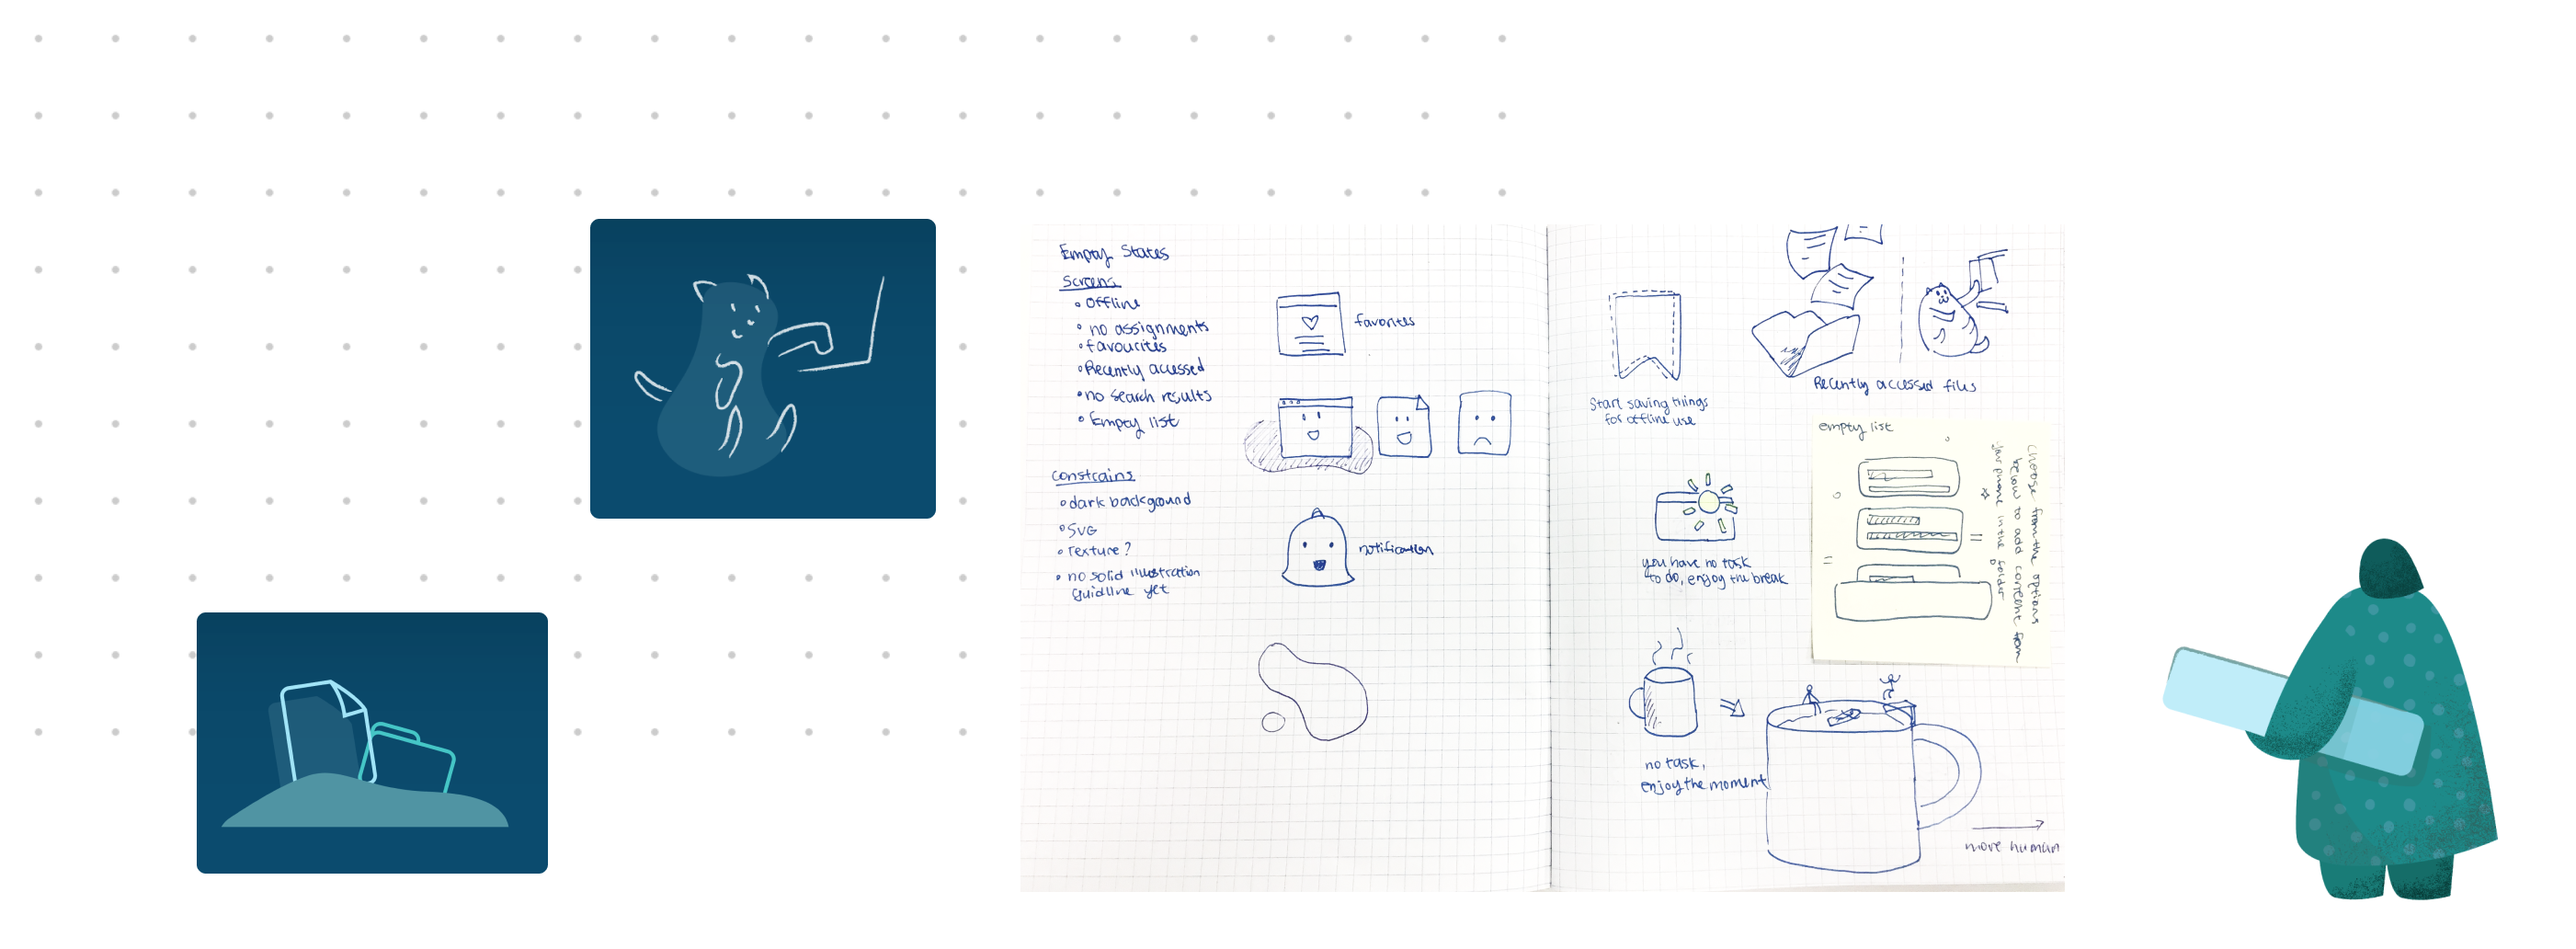 Empty States
Screens
• Offline
• no assignments
• favourites
• Recently accessed
• no search results
• Empty list
Constrains
• dark background
• SVG
• Texture?
• no solid illustration
guidline yet
favorites
notification
Start saving things
for offline use
Recently accessed files
empty list
Choose from the options
below to add content from
your phone in the folder
you have no task
to do, enjoy the break
no task,
enjoy the moment
more human